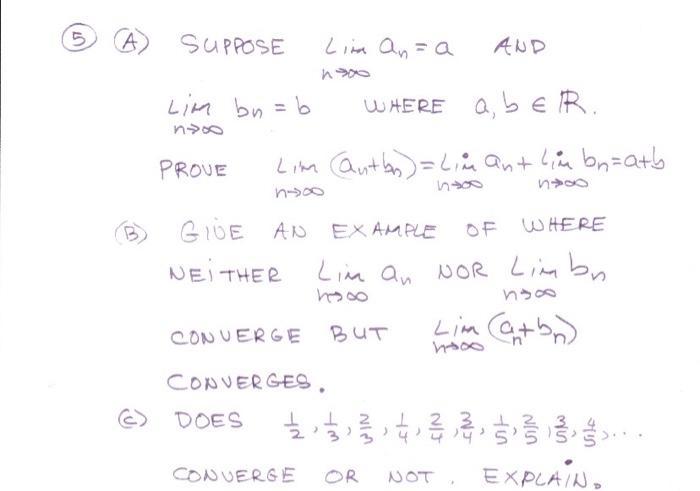 5 (A) SUPPOSE Lim aₙ = a AND
n→∞
Lim bₙ = b WHERE a, b ∈ ℝ.
n→∞
PROVE Lim (aₙ+bₙ) = Lim aₙ + Lim bₙ = a+b
n→∞ n→∞ n→∞
(B) GIVE AN EXAMPLE OF WHERE
NEITHER Lim aₙ NOR Lim bₙ
n→∞ n→∞
CONVERGE BUT Lim (aₙ+bₙ)
n→∞
CONVERGES.
(C) DOES 1/2, 1/3, 2/3, 1/4, 2/4, 3/4, 1/5, 2/5, 3/5, 4/5, ...
CONVERGE OR NOT. EXPLAIN.